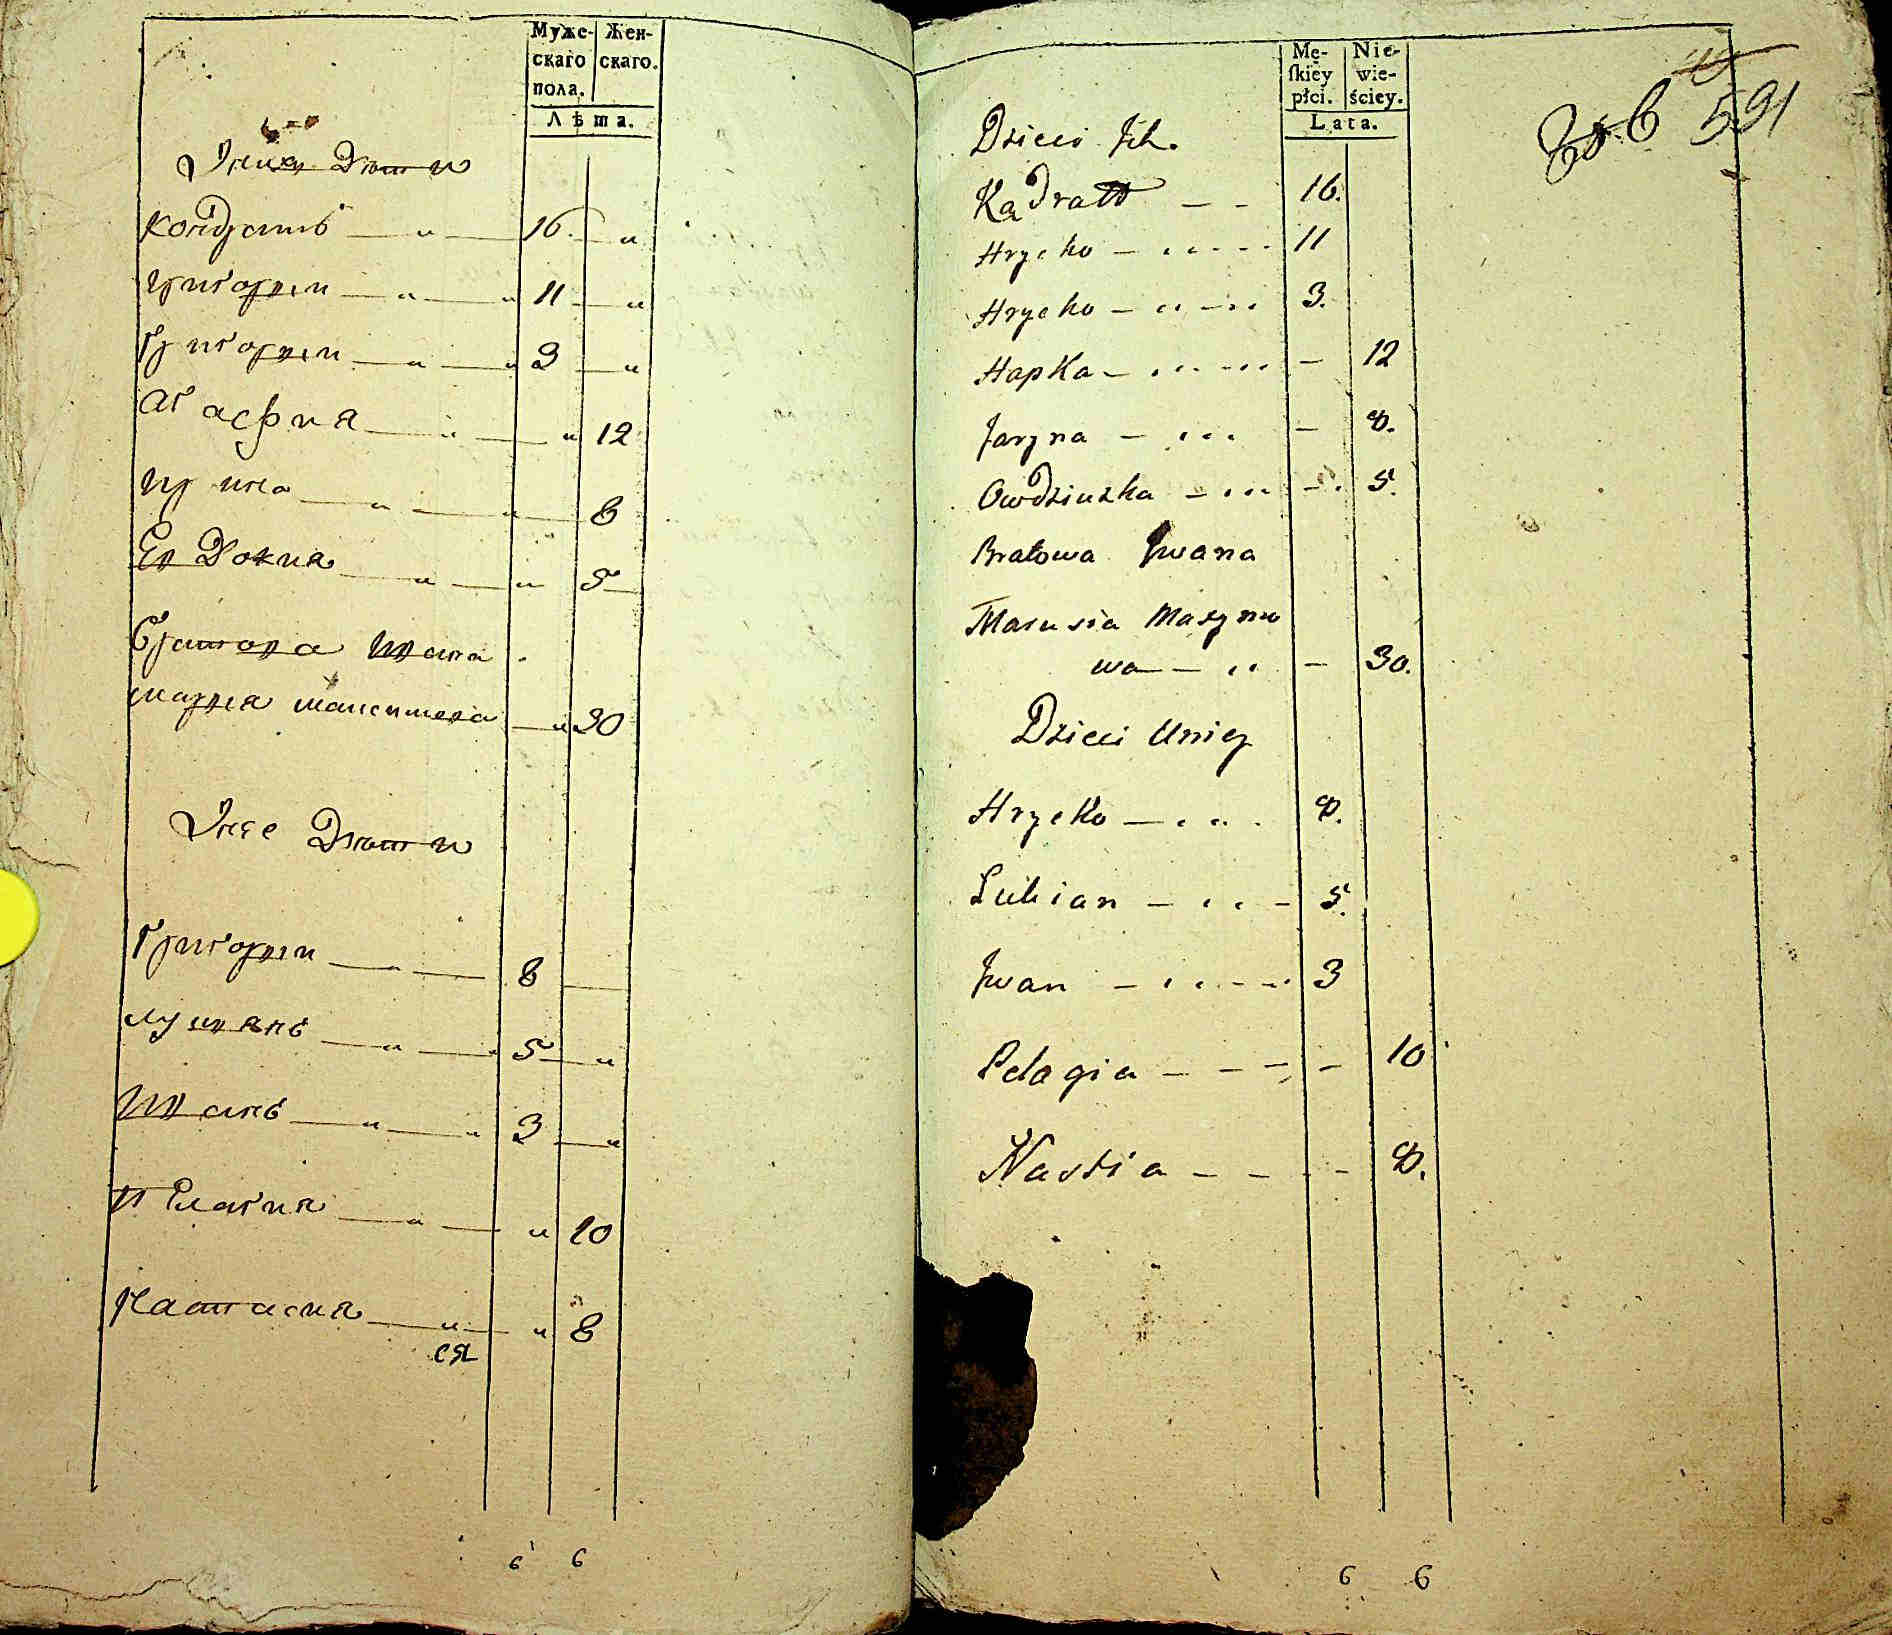 Муже- Жен-
скаго скаго.
пола.
Лѣта.
Ихъ Дѣти
Кондратъ — „ — 16 — „
Григорей — „ — „ 11 — „
Григорей — „ — „ 3 — „
Агафия — „ — „ 12
Ирина — „ — „ — 8
Евдокия — „ — „ 5
Братова Ивана
Марья Максимова — „ 30
Ихъ Дѣти
Григорей — „ — 8 —
Лукиянъ — „ — 5 — „
Иванъ — „ — „ 3 — „
Пелагия — „ — „ 10
Настасия — „ — „ 8
ся
6 6
Mę- Nie-
skiey wie-
płci. ściey.
Lata.
591
Dzieci Ich.
Kądratt — — 16.
Hrycko — 11
Hrycko — 3.
Hapka — — 12
Jaryna — — 8.
Owdziuzka — — 5.
Bratowa Iwana
Marusia Maxymo
wa — — 30.
Dzieci Uniey
Hrycko — 8.
Lukian — — 5.
Iwan — — 3
Pelagia — — — — 10
Nastia — — — — 8.
6 6